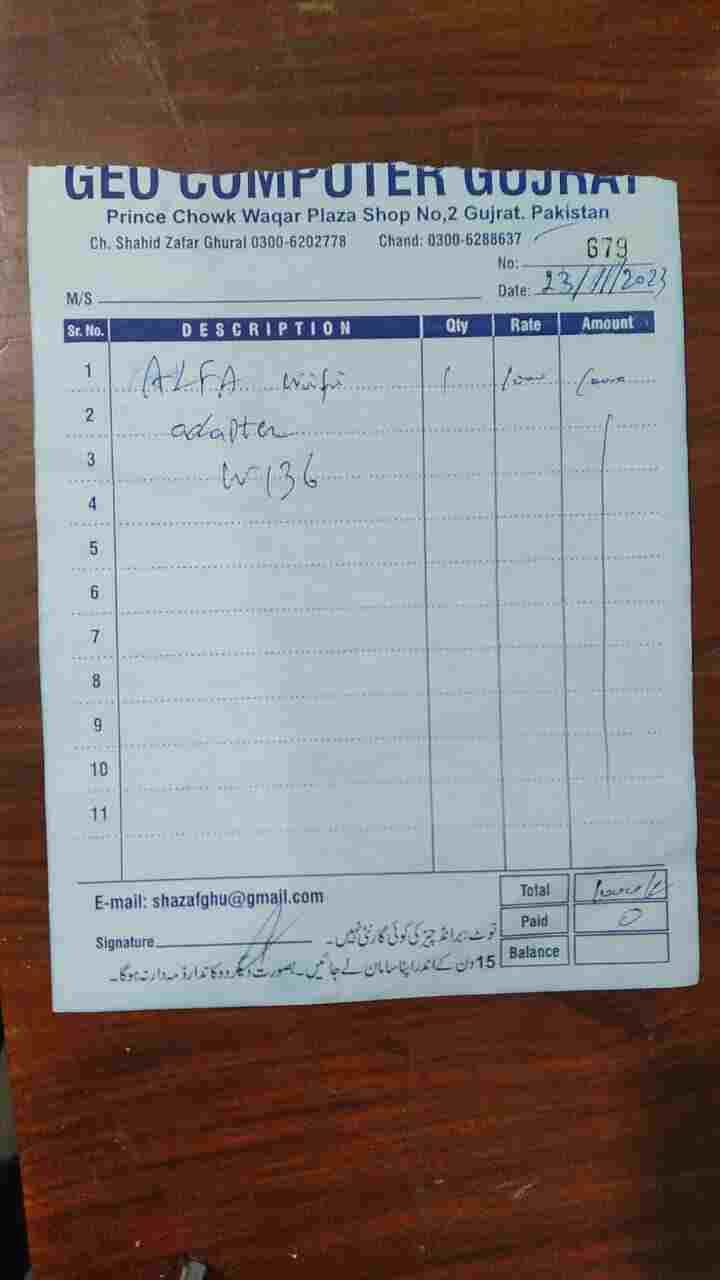 GEO COMPUTER GUJRAT
Prince Chowk Waqar Plaza Shop No,2 Gujrat. Pakistan
Ch. Shahid Zafar Ghural 0300-6202778 Chand: 0300-6288637
No: 679
M/S Date: 23/11/2023
Sr. No. DESCRIPTION Qty Rate Amount
1 ALFA wifi 1
2 adapter
3 W136
4
5
6
7
8
9
10
11
E-mail: shazafghu@gmail.com
Total
Paid 0
Balance
Signature
نوٹ: برانڈ چیز کی کوئی گارنٹی نہیں۔
15 دن کے اندر اپنا سامان لے جائیں۔ بصورت دیگر دوکاندار ذمہ دار نہ ہوگا۔